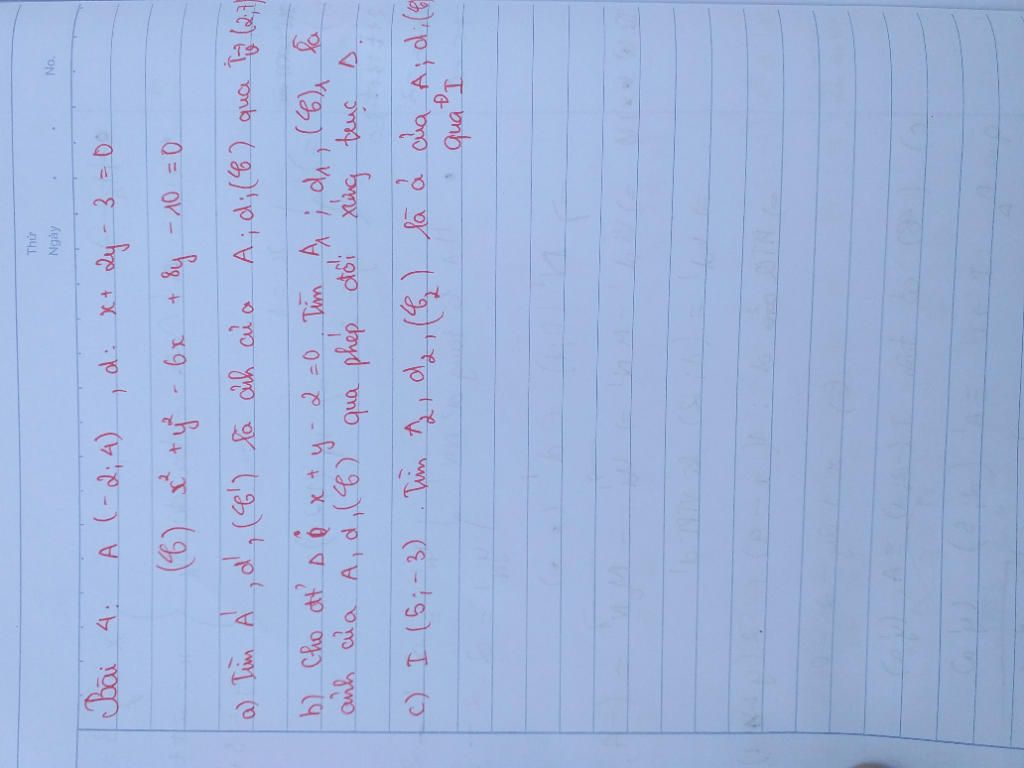 Thứ
Ngày
No.
Bài 4: A (-2;4) , d: x + 2y - 3 = 0
(C) x² + y² - 6x + 8y - 10 = 0
a) Tìm A', d', (C') là ảnh của A; d; (C) qua T v (2;7)
b) Cho đt' Δ x + y - 2 = 0. Tìm A₁; d₁, (C)₁ là
ảnh của A, d, (C) qua phép đối xứng trục Δ.
c) I (5;-3). Tìm A₂, d₂, (C₂) là ả của A; d; (C)
qua Đ I